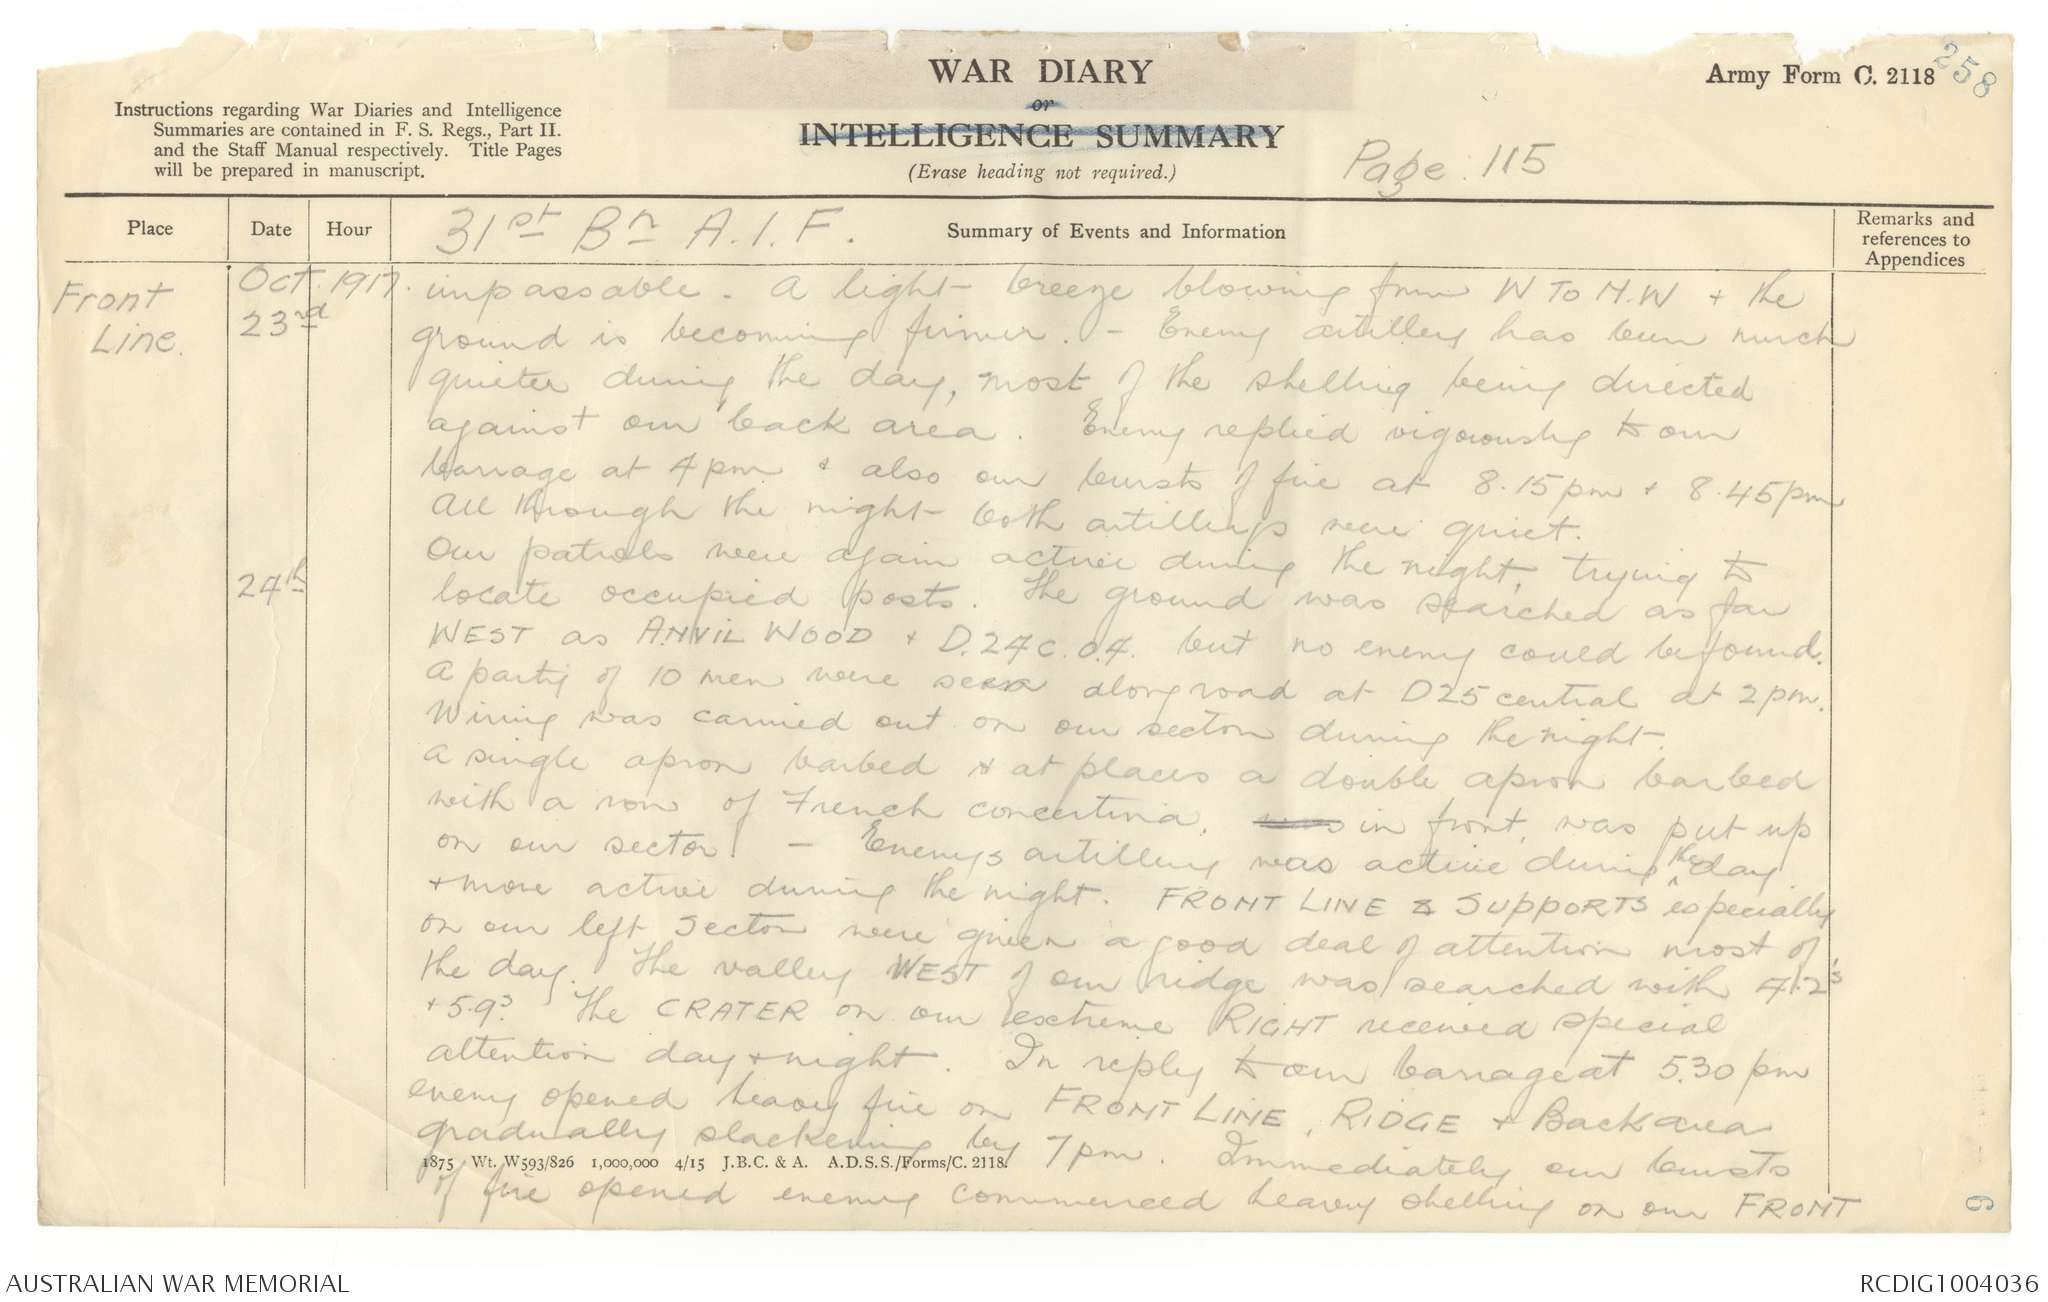 WAR DIARY
or
INTELLIGENCE SUMMARY
(Erase heading not required.)
Army Form C. 2118
258
Instructions regarding War Diaries and Intelligence
Summaries are contained in F. S. Regs., Part II.
and the Staff Manual respectively. Title Pages
will be prepared in manuscript.
Page. 115
Place
Date
Hour
31st Bn A.I.F.
Summary of Events and Information
Remarks and
references to
Appendices
Front
Line.
Oct. 1917.
23rd
impassable. A light breeze blowing from W TO N.W + the
ground is becoming firmer. - Enemy artillery has been much
quieter during the day, most of the shelling being directed
against our back area. Enemy replied vigorously to our
barrage at 4pm + also our bursts of fire at 8.15pm + 8.45pm
All through the night both artillerys were quiet.
24th
Our patrols were again active during the night, trying to
locate occupied posts. The ground was searched as far
WEST as ANVIL WOOD + D.24c.0.4. but no enemy could be found.
A party of 10 men were seen along road at D25 central at 2pm.
Wiring was carried out on our sector during the night.
A single apron barbed & at places a double apron barbed
with a row of French concertina, was in front, was put up
on our sector. - Enemys artillery was active during the day
+ more active during the night. FRONT LINE & SUPPORTS especially
on our left sector were given a good deal of attention most of
the day. The valley WEST of our ridge was searched with 4.2s
+ 5.9s. The CRATER on our extreme RIGHT received special
attention day + night. In reply to our barrage at 5.30 pm
enemy opened heavy fire on FRONT LINE, RIDGE + Back area
gradually slackening by 7pm. Immediately our bursts
of fire opened enemy commenced heavy shelling on our FRONT
1875 Wt. W593/826 1,000,000 4/15 J.B.C. & A. A.D.S.S./Forms/C. 2118.
9
AUSTRALIAN WAR MEMORIAL
RCDIG1004036